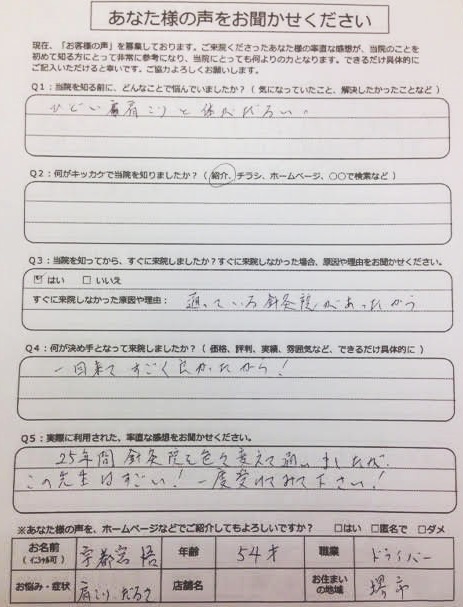 あなた様の声をお聞かせください
現在、「お客様の声」を募集しております。ご来院くださったあなた様の率直な感想が、当院のことを
初めて知る方にとって非常に参考になり、当院にとっても何よりの力となります。できるだけ具体的に
ご記入いただけると幸いです。ご協力よろしくお願いします。
Q1：当院を知る前に、どんなことで悩んでいましたか？（ 気になっていたこと、解決したかったことなど ）
ひどい肩こりと体がだるい。
Q2：何がキッカケで当院を知りましたか？（ 紹介、チラシ、ホームページ、○○で検索など ）
Q3：当院を知ってから、すぐに来院しましたか？すぐに来院しなかった場合、原因や理由をお聞かせください。
☑ はい　□ いいえ
すぐに来院しなかった原因や理由： 通っている針灸院があったから
Q4：何が決め手となって来院しましたか？（ 価格、評判、実績、雰囲気など、できるだけ具体的に ）
一回来てすごく良かったから！
Q5：実際に利用された、率直な感想をお聞かせください。
25年間 針灸院を色々変えて通いましたが、
この先生はすごい！一度受けてみて下さい！
※あなた様の声を、ホームページなどでご紹介してもよろしいですか？　□はい　□匿名で　□ダメ
お名前 宇都宮 悟 年齢 54才 職業 ドライバー
（ イニシャル可 ）
お悩み・症状 肩こり、だるさ 店舗名 お住まいの地域 堺市